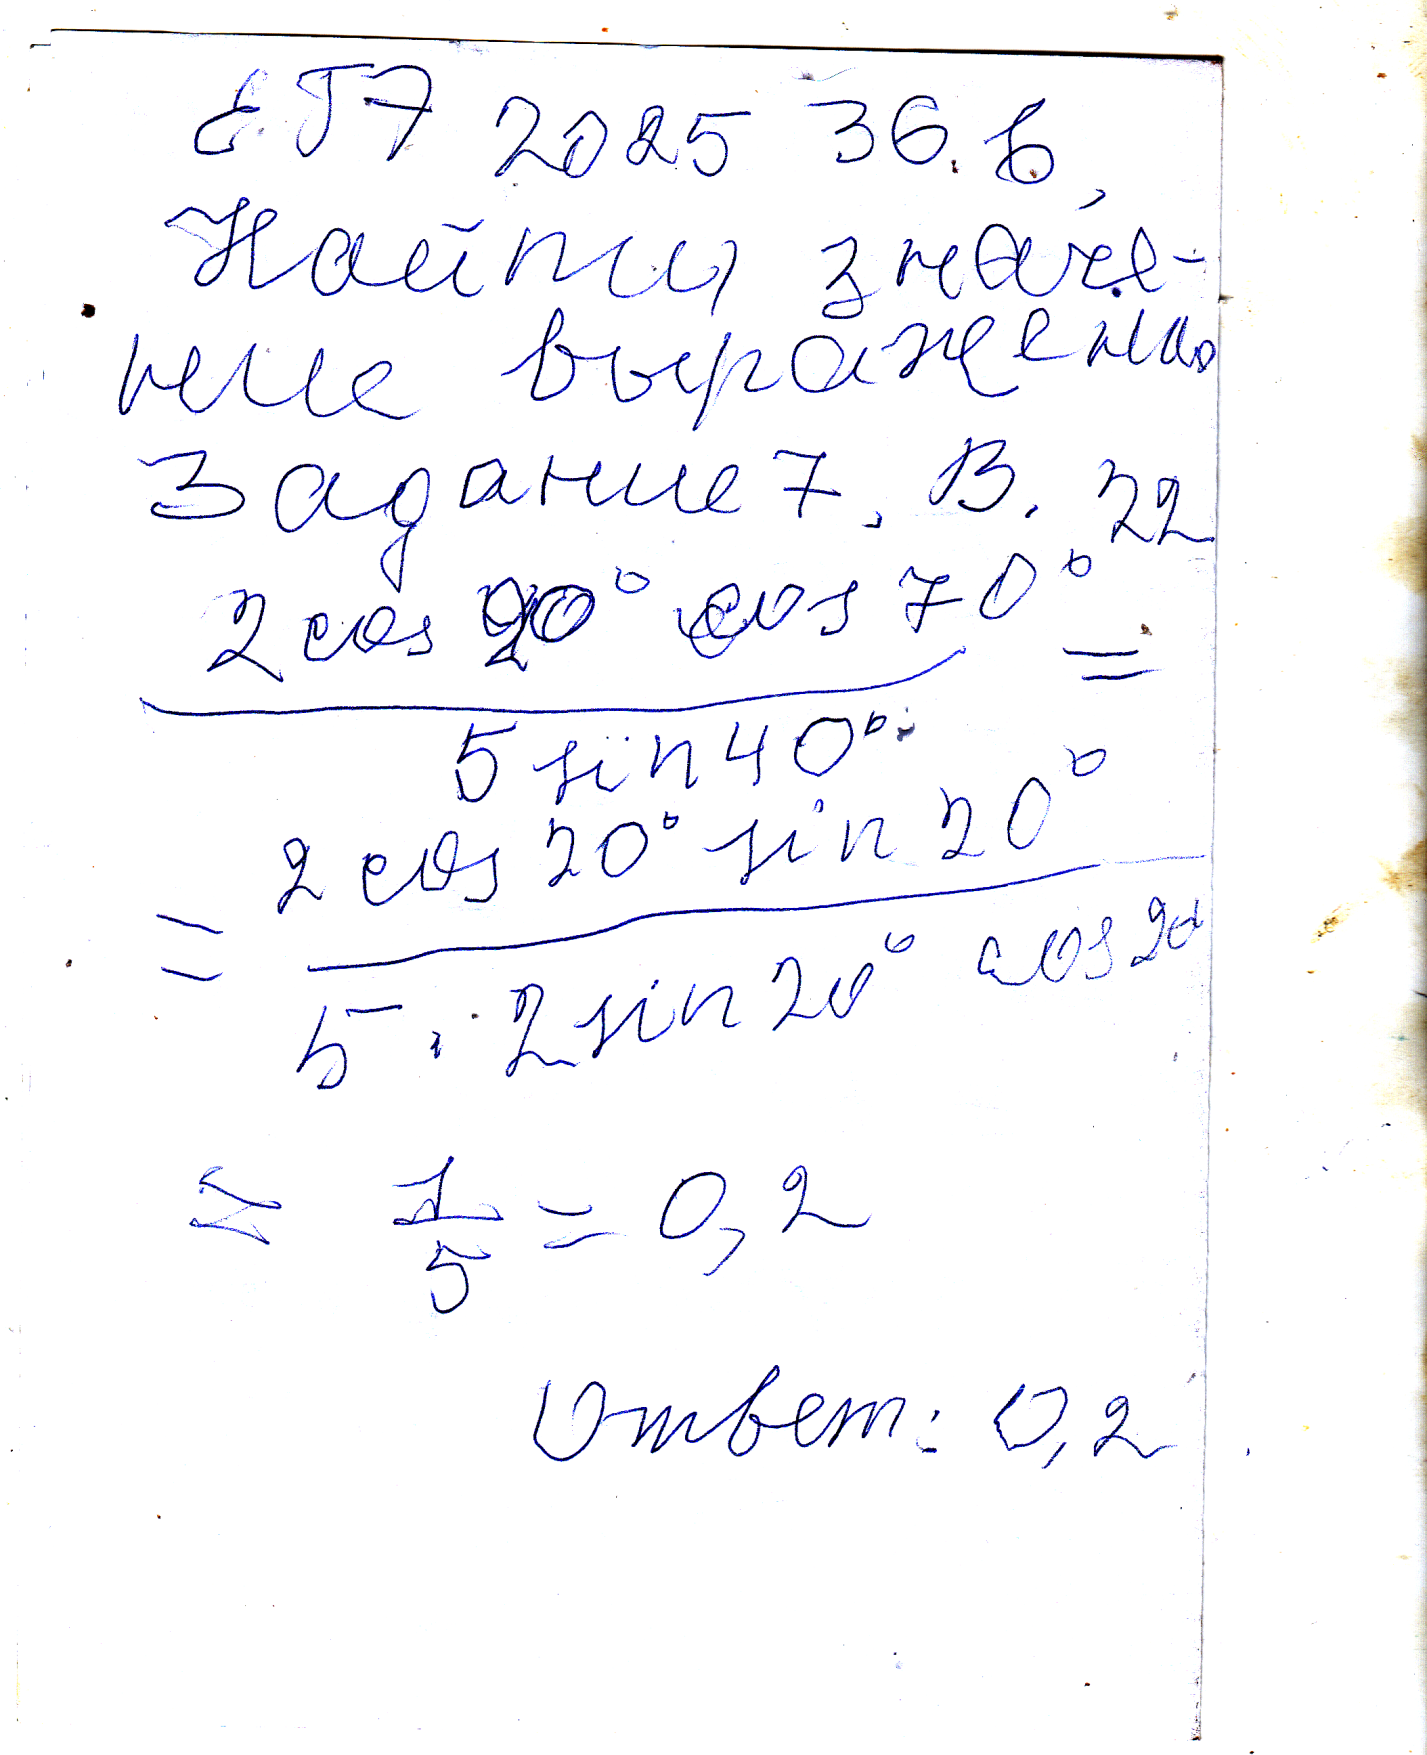 ЕГЭ 2025 36. в,
Найти значе-
ние выражения
Задание 7. В. 22
2 cos 20° cos 70° =
5 sin 40°
2 cos 20° sin 20°
=
5 · 2 sin 20° cos 20°
= 1/5 = 0,2
Ответ: 0,2